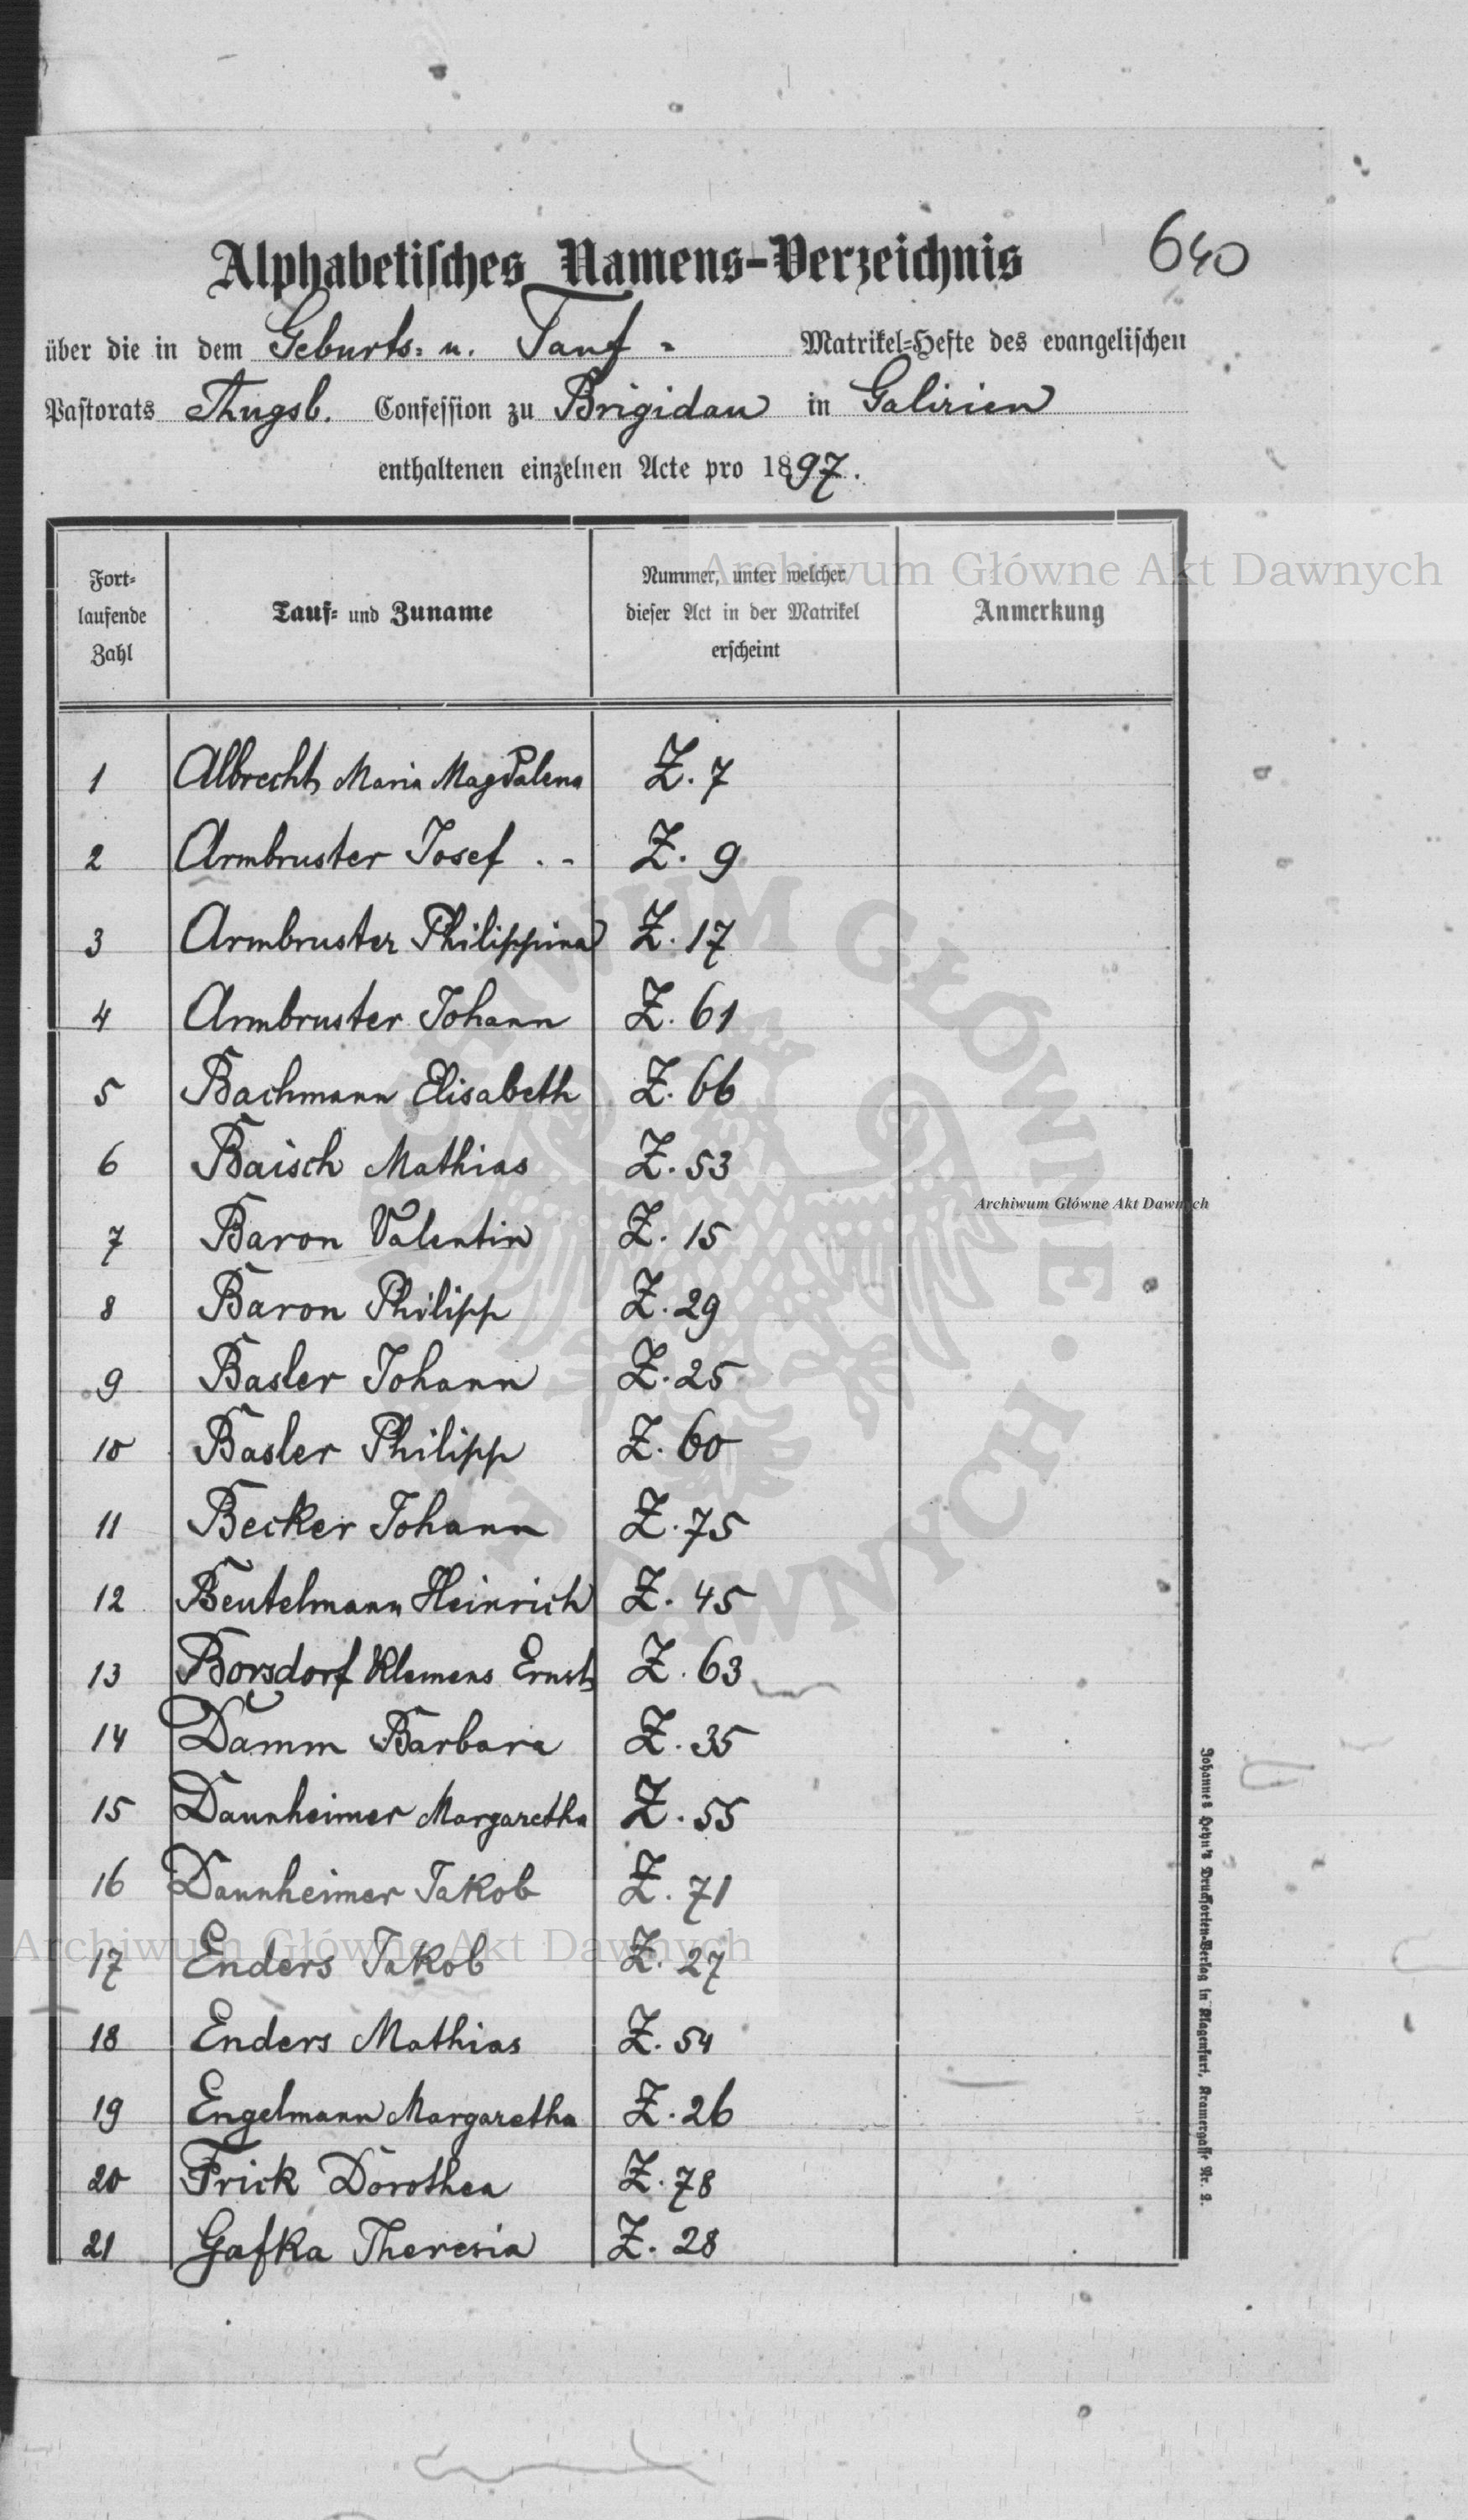 640
Alphabetisches Namens-Verzeichnis
über die in dem Geburts- u. Tauf- Matrikel-Hefte des evangelischen
Pastorats Augsb. Confession zu Brigidau in Galizien
enthaltenen einzelnen Acte pro 1897.
Fort-
laufende
Zahl
Tauf- und Zuname
Nummer, unter welcher
dieser Act in der Matrikel
erscheint
Anmerkung
1 Albrecht Maria Magdalena Z. 7
2 Armbruster Josef . - Z. 9
3 Armbruster Philippina Z. 17
4 Armbruster Johann Z. 61
5 Bachmann Elisabeth Z. 66
6 Baisch Mathias Z. 53
7 Baron Valentin Z. 15
8 Baron Philipp Z. 29
9 Basler Johann Z. 25
10 Basler Philipp Z. 60
11 Becker Johann Z. 75
12 Beutelmann Heinrich Z. 45
13 Borsdorf Klemens Ernst Z. 63
14 Damm Barbara Z. 35
15 Daunheimer Margaretha Z. 55
16 Daunheimer Jakob Z. 71
17 Enders Jakob Z. 27
18 Enders Mathias Z. 54
19 Engelmann Margaretha Z. 26
20 Frick Dorothea Z. 78
21 Gafka Theresia Z. 28
Johannes Heyn's Drucksorten-Verlag in Klagenfurt, Kramergasse Nr. 2.
Archiwum Główne Akt Dawnych
Archiwum Główne Akt Dawnych
Archiwum Główne Akt Dawnych
ARCHIWUM GŁÓWNE · AKT DAWNYCH ·